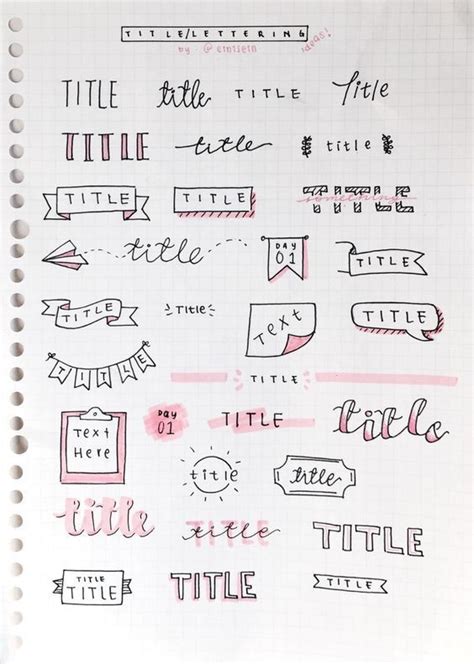 TITLE/LETTERING
by - @emtsern ideas!
TITLE title TITLE Title
TITLE title title
TITLE TITLE TITLE something
title DAY 01 TITLE
TITLE Title Text TITLE
TITLE
TITLE
Text Here DAY 01 TITLE title
title title
title TITLE TITLE
TITLE TITLE TITLE TITLE